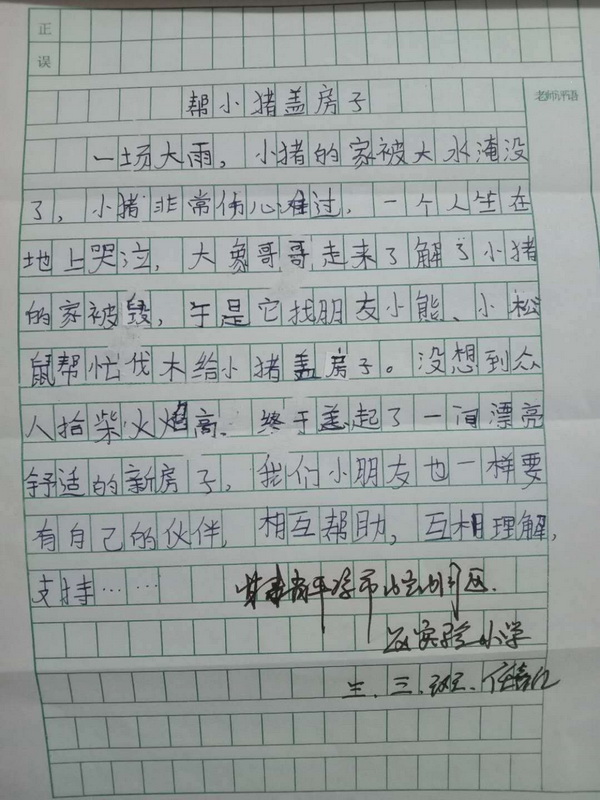 正
误
老师评语
帮小猪盖房子
一场大雨，小猪的家被大水淹没
了，小猪非常伤心难过，一个人坐在
地上哭泣，大象哥哥走来了解了小猪
的家被毁，于是它找朋友小熊、小松
鼠帮忙伐木给小猪盖房子。没想到众
人拾柴火焰高、终于盖起了一间漂亮
舒适的新房子，我们小朋友也一样要
有自己的伙伴，相互帮助，互相理解，
支持……
甘肃省平凉市
实验小学
三.班.任